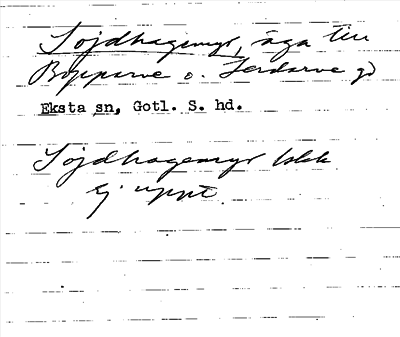 Sojdhagemyr, äga till
Bopparve o. Lerdarve gd
Eksta sn, Gotl. S. hd.
Sojdhagemyr lokk
ej uppt.